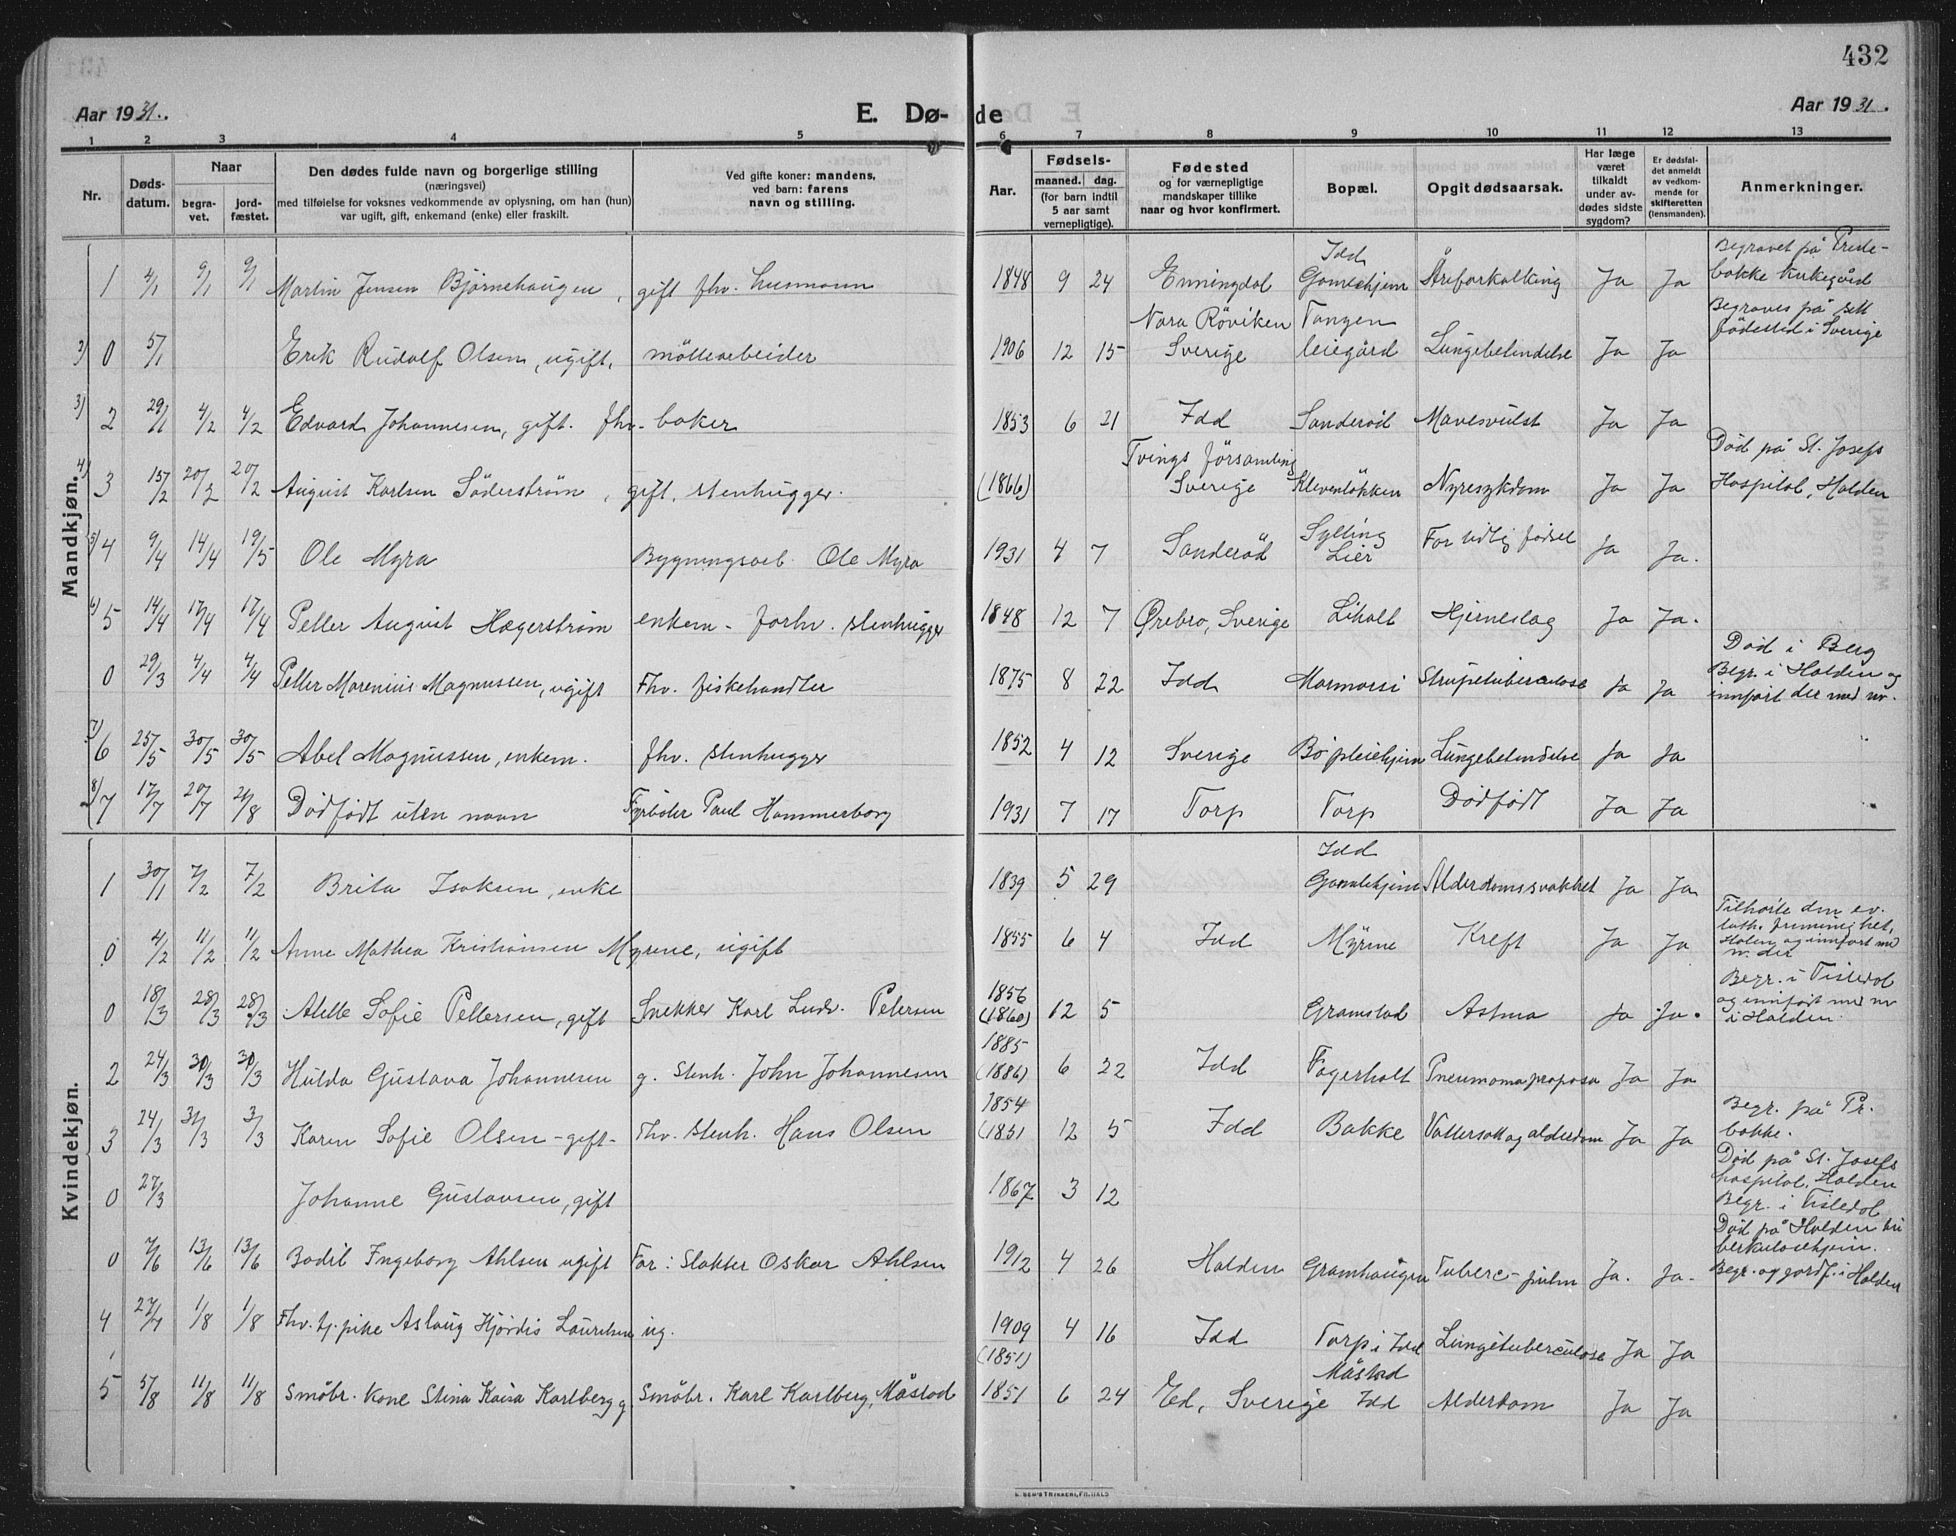 432
Aar 1931. E. Dø- de Aar 1931.
1 2 3 4 5 6 7 8 9 10 11 12 13
Nr. Døds-datum. Naar begra-vet. jord-fæstet. Den dødes fulde navn og borgerlige stilling (næringsvei) med tilføielse for voksnes vedkommende av oplysning, om han (hun) var ugift, gift, enkemand (enke) eller fraskilt. Ved gifte koner: mandens, ved barn: farens navn og stilling. Aar. Fødsels- maaned. dag. (for barn indtil 5 aar samt vernepligtige). Fødested og for værnepligtige mandskaper tillike naar og hvor konfirmert. Bopæl. Opgit dødsaarsak. Har læge været tilkaldt under av-dødes sidste sygdom? Er dødsfal-det anmeldt av vedkom-mende for skifteretten (lensmanden). Anmerkninger.
Mandkjøn.
1 4/1 9/1 9/1 Martin Jensen Bjørnehaugen, gift fhv. husmann 1848 9 24 Enningdal Idd Gamlehjem Åreforkalkning Ja Ja Begravet på Preste-bakke kirkegård
2) 0 5/1 Erik Rudolf Olsen, ugift, møllearbeider 1906 12 15 Nora Røviken Sverige Tangen leiegård Lungebetendelse Ja Ja Begraves på sitt fødested i Sverige
3) 2 29/1 4/2 4/2 Edvard Johannesen, gift. fhv. baker 1853 6 21 Idd Sanderød Mavesvulst Ja Ja
4) 3 15/2 20/2 20/2 August Karlsen Söderström, gift, stenhugger. (1866) Tvings församling Sverige Klevenløkken Nyresykdom Ja Ja Død på St. Josefs Hospital, Halden
5) 4 9/4 14/4 19/5 Ole Myra Bygningsarb. Ole Myra 1931 4 7 Sanderød Sylling Lier For tidlig fødsel Ja Ja.
6) 5 14/4 17/4 17/4 Petter August Hægerstrøm enkem - forhv. stenhugger 1848 12 7 Ørebro, Sverige Liholt Hjerneslag Ja Ja.
0 29/3 4/4 4/4 Petter Marenius Magnussen, ugift Fhv. fiskehandler 1875 8 22 Idd Marmorsi Strupetuberculose Ja Ja Død i Berg Begr. i Halden og innført der med nr.
7) 6 25/5 30/5 30/5 Abel Magnussen, enkem. fhv. stenhugger 1852 4 12 Sverige Bø pleiehjem Lungebetendelse Ja Ja
8) 7 17/7 20/7 21/8 Dødfødt uten navn Fyrbøter Paul Hammerborg 1931 7 17 Torp Torp Dødfødt Ja Ja
Kvindekjøn.
1 30/1 7/2 7/2 Brita Isaksen, enke 1839 5 29 Idd Gamlehjem Alderdomssvakhet Ja Ja
0 4/2 11/2 11/2 Anne Mathea Kristiansen Myrene, ugift 1855 6 4 Idd Myrene Kreft Ja Ja Tilhørte den ev. luth. frimenighet, Halden og innført med nr. der
0 18/3 28/3 28/3 Atelle Sofie Pettersen, gift Snekker Karl Ludv. Petersen 1856 (1860) 12 5 Gramstad Astma Ja Ja. Begr. i Tistedal og innført med nr i Halden.
2 24/3 30/3 30/3 Hulda Gustava Johannesen g. Stenh. John Johannesen 1885 (1886) 6 22 Idd Fagerholt Pneumoma proposa Ja Ja
3 24/3 31/3 3/3 Karen Sofie Olsen - gift - Fhv. Stenh. Hans Olsen 1854 (1851 12 5 Idd Bakke Vattersott og alderdom Ja Ja Begr. på Pr. bakke.
0 27/3 Johanne Gustavsen, gift 1867 3 12 Død på St. Josefs hospital, Halden Begr. i Tistedal
0 7/6 13/6 13/6 Bodil Ingeborg Ahlsen ugift Far: Slakter Oskar Ahlsen 1912 4 26 Halden Gramhaugen Tuberc - pulm Ja. Ja - Død på Halden tu berkulosehjem. Begr. og jordf. i Halden
4 27/7 1/8 1/8 Fhv. tj. pike Aslaug Hjørdis Lauritsen ug. 1909 4 16 Idd Torp i Idd Lungetuberculose Ja Ja
5 5/8 11/8 11/8 Småbr. kone Stina Kaisa Karlberg g Småbr. Karl Karlberg, Måstad (1851) 1851 6 24 Ed, Sverige Måstad Idd Alderdom Ja Ja